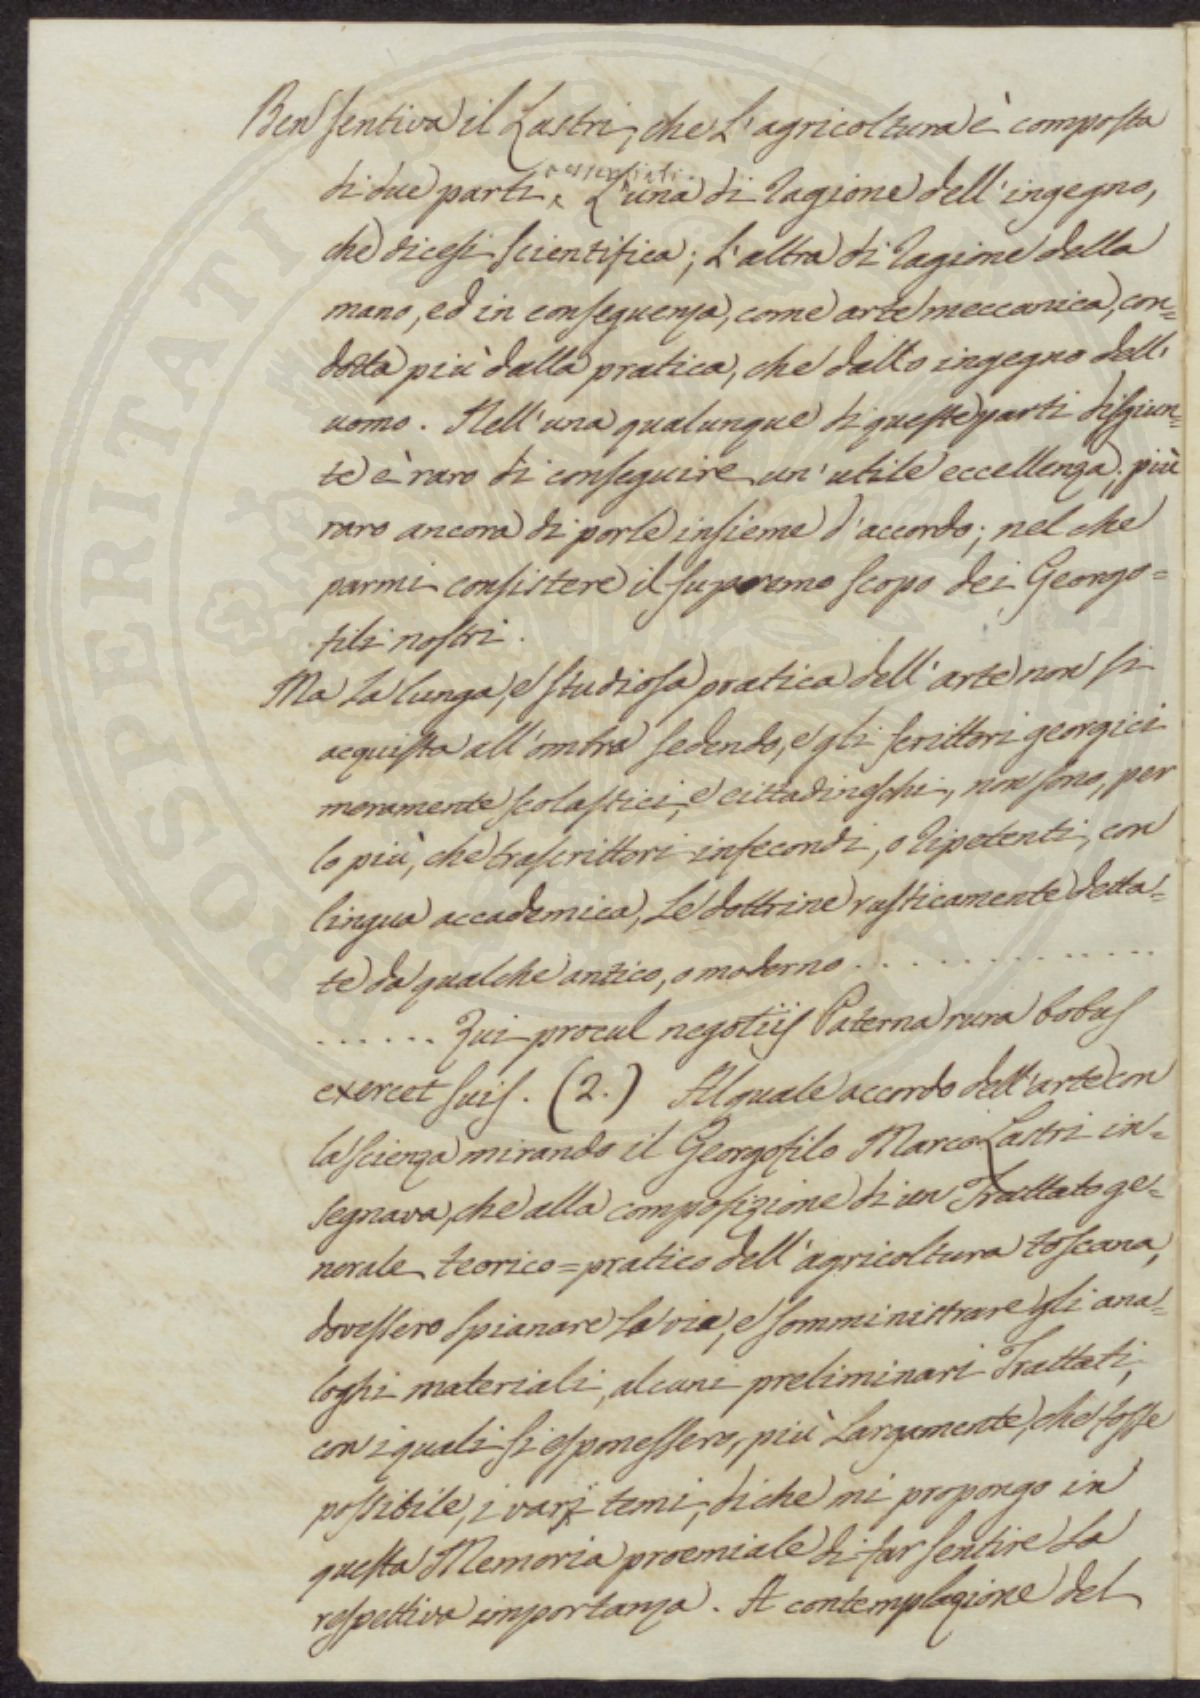 Ben sentiva il Lastri, che l'agricoltura è composta
essenziali
di due parti, L'una di ragione dell'ingegno,
che dicesi scientifica; l'altra di ragione della
mano, ed in conseguenza, come arte meccanica, con=
dotta più dalla pratica, che dallo ingegno dell'
uomo. Nell'una qualunque di queste parti disgiun=
te è raro di conseguire un'utile eccellenza; più
raro ancora di porle insieme d'accordo; nel che
parmi consistere il supremo scopo dei Georgo=
fili nostri.
Ma la lunga, e studiosa pratica dell'arte non si
acquista all'ombra sedendo, e gli scrittori georgici
meramente scolastici, e cittadineschi, non sono, per
lo più, che trascrittori infecondi, o ripetenti, con
lingua accademica, le dottrine rusticamente detta=
te da qualche antico, o moderno . . . . . . . . . . . . .
. . . . . . Qui procul negotiis Paterna rura bobus
exercet suis. (2.) Al quale accordo dell'arte con
la scienza mirando il Georgofilo Marco Lastri in=
segnava, che alla composizione di un Trattato ge=
nerale teorico=pratico dell'agricoltura toscana,
dovessero spianare la via, e somministrare gli ana=
loghi materiali, alcuni preliminari Trattati,
con i quali si esponessero, più largamente, che fosse
possibile, i varj temi, di che mi propongo in
questa Memoria proemiale di far sentire la
respettiva importanza. A contemplazione del
PROSPERITATI PUBLICAE